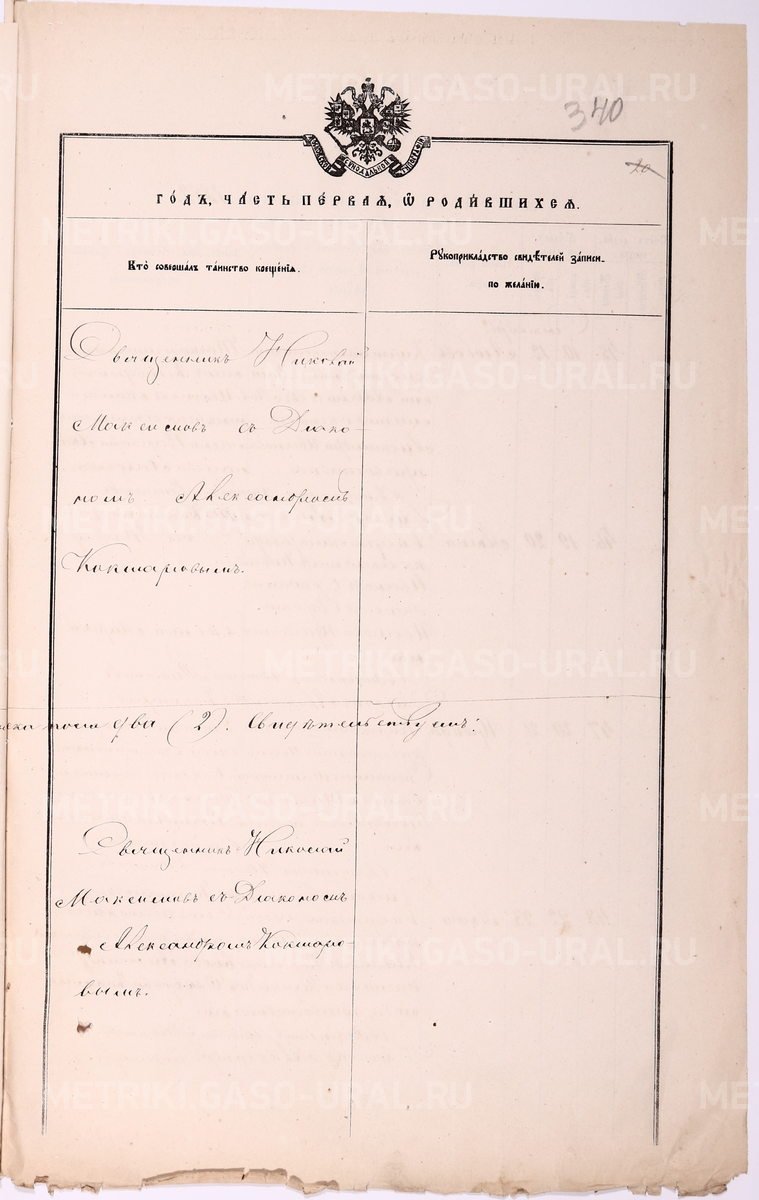 340
20
ДУХОВНОЙ СУНОДАЛЬНОЕ
ГО́ДЪ, ЧА́СТЬ ПЕ́РВАѦ, Ѡ҆ РОДИ́ВШИХСѦ.
Кто̀ совершалъ таинство крещенїѧ.
Рукоприкла́дство свидѣ́телей за́писи
по жела́нїю.
Священникъ Николай
Максимовъ съ Діако-
номъ Александромъ
Кокшаровымъ.
два (2). Свидѣтельствуемъ:
Священникъ Николай
Максимовъ съ Діакономъ
Александромъ Кокшаро-
вымъ.
METRIKI.GASO-URAL.RU